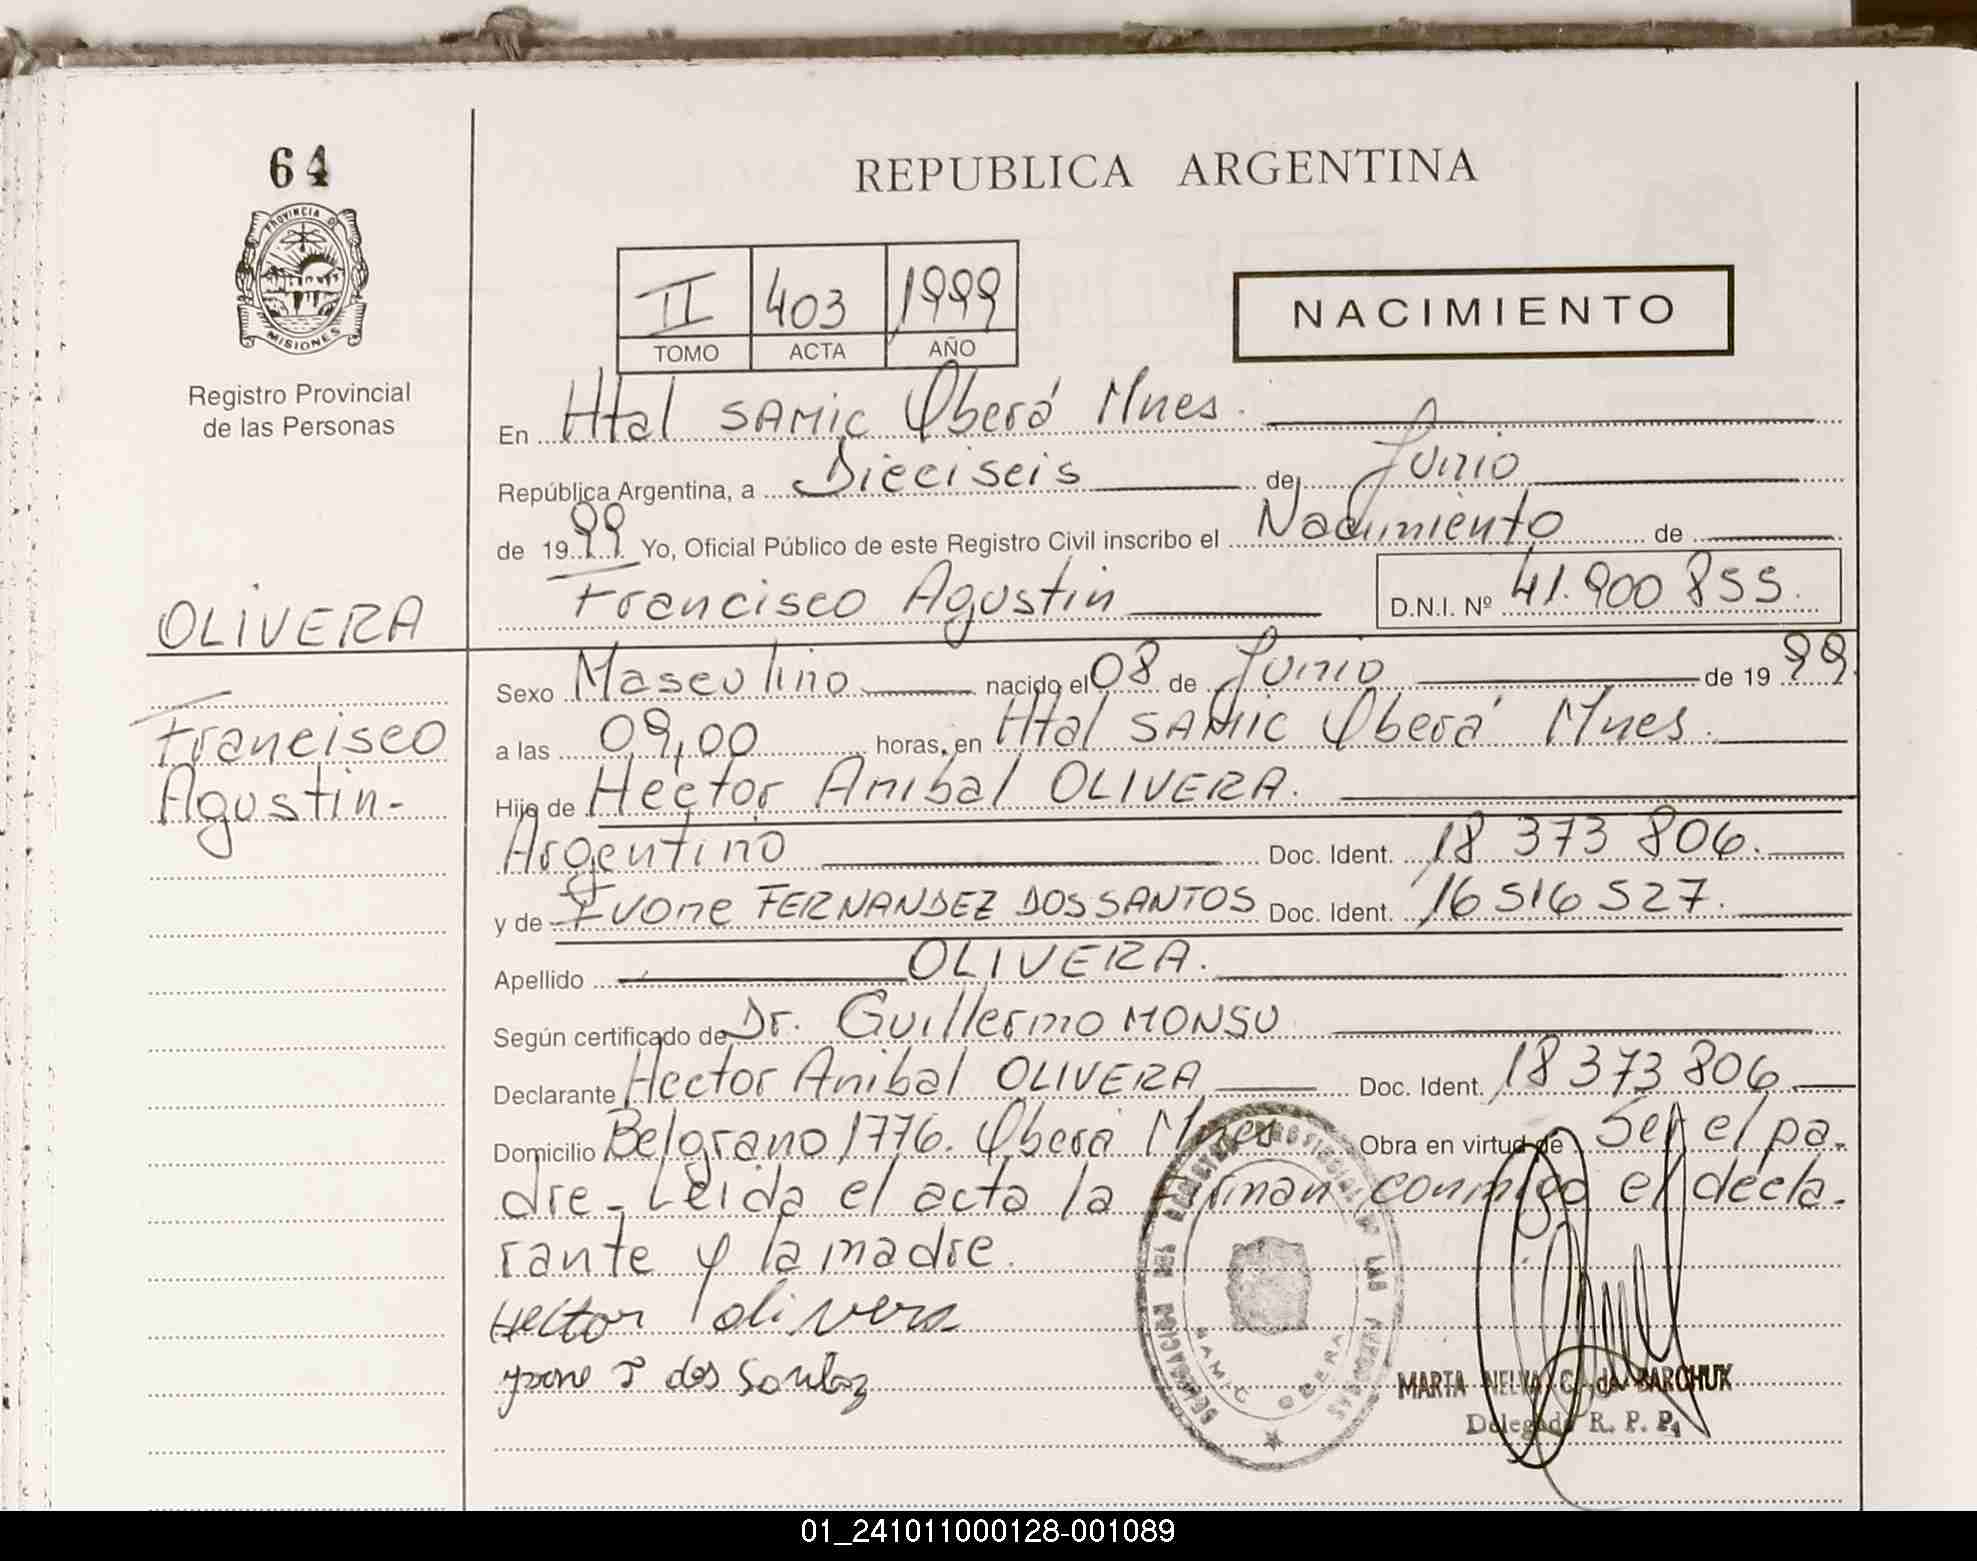 64
PROVINCIA DE
MISIONES
Registro Provincial
de las Personas
REPUBLICA ARGENTINA
II 403 1999
TOMO ACTA AÑO
NACIMIENTO
En Htal SAMIC Oberá Mnes.
República Argentina, a Dieciseis de Junio
de 1999 Yo, Oficial Público de este Registro Civil inscribo el Nacimiento de
Francisco Agustin D.N.I. Nº 41.900 855.
OLIVERA
Francisco
Agustin-
Sexo Masculino nacido el 08 de Junio de 1999
a las 09,00 horas, en Htal SAMIC Oberá Mnes.
Hijo de Hector Anibal OLIVERA.
Argentino Doc. Ident. 18 373 806.
y de Ivone FERNANDEZ DOS SANTOS Doc. Ident. 16 516 527.
Apellido OLIVERA.
Según certificado de Dr. Guillermo MONSU
Declarante Hector Anibal OLIVERA Doc. Ident. 18 373 806
Domicilio Belgrano 1776. Oberá Mnes Obra en virtud de Ser el pa-
dre- Leida el acta la firman conmigo el decla-
rante y la madre.
Hector olivera
yvone F dos Santos
DELEGACION DEL REGISTRO PROVINCIAL DE LAS PERSONAS
SAMIC OBERA
MARTA NELVA C. de BARCHUK
Delegada R. P. P.
01_241011000128-001089